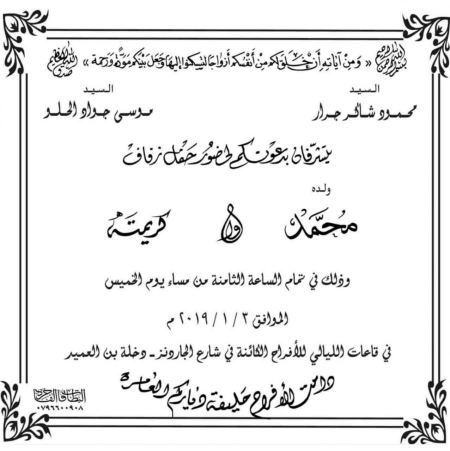 بسم الله الرحمن الرحيم « وَمِنْ آيَاتِهِ أَنْ خَلَقَ لَكُم مِّنْ أَنفُسِكُمْ أَزْوَاجًا لِّتَسْكُنُوا إِلَيْهَا وَجَعَلَ بَيْنَكُم مَّوَدَّةً وَرَحْمَةً » صدق الله العظيم
السيد السيد
محمود شاكر جرار موسى جواد الحلو
يتشرفان بدعوتكم لحضور حفل زفاف
ولده
محمد و كريمته
وذلك في تمام الساعة الثامنة من مساء يوم الخميس
الموافق ٣ / ١ / ٢٠١٩ م
في قاعات الليالي للأفراح الكائنة في شارع الجاردنز - دخلة بن العميد
دامت الأفراح حليفة دياركم العامرة
٠٧٩٦٦٠٠٩٠٨